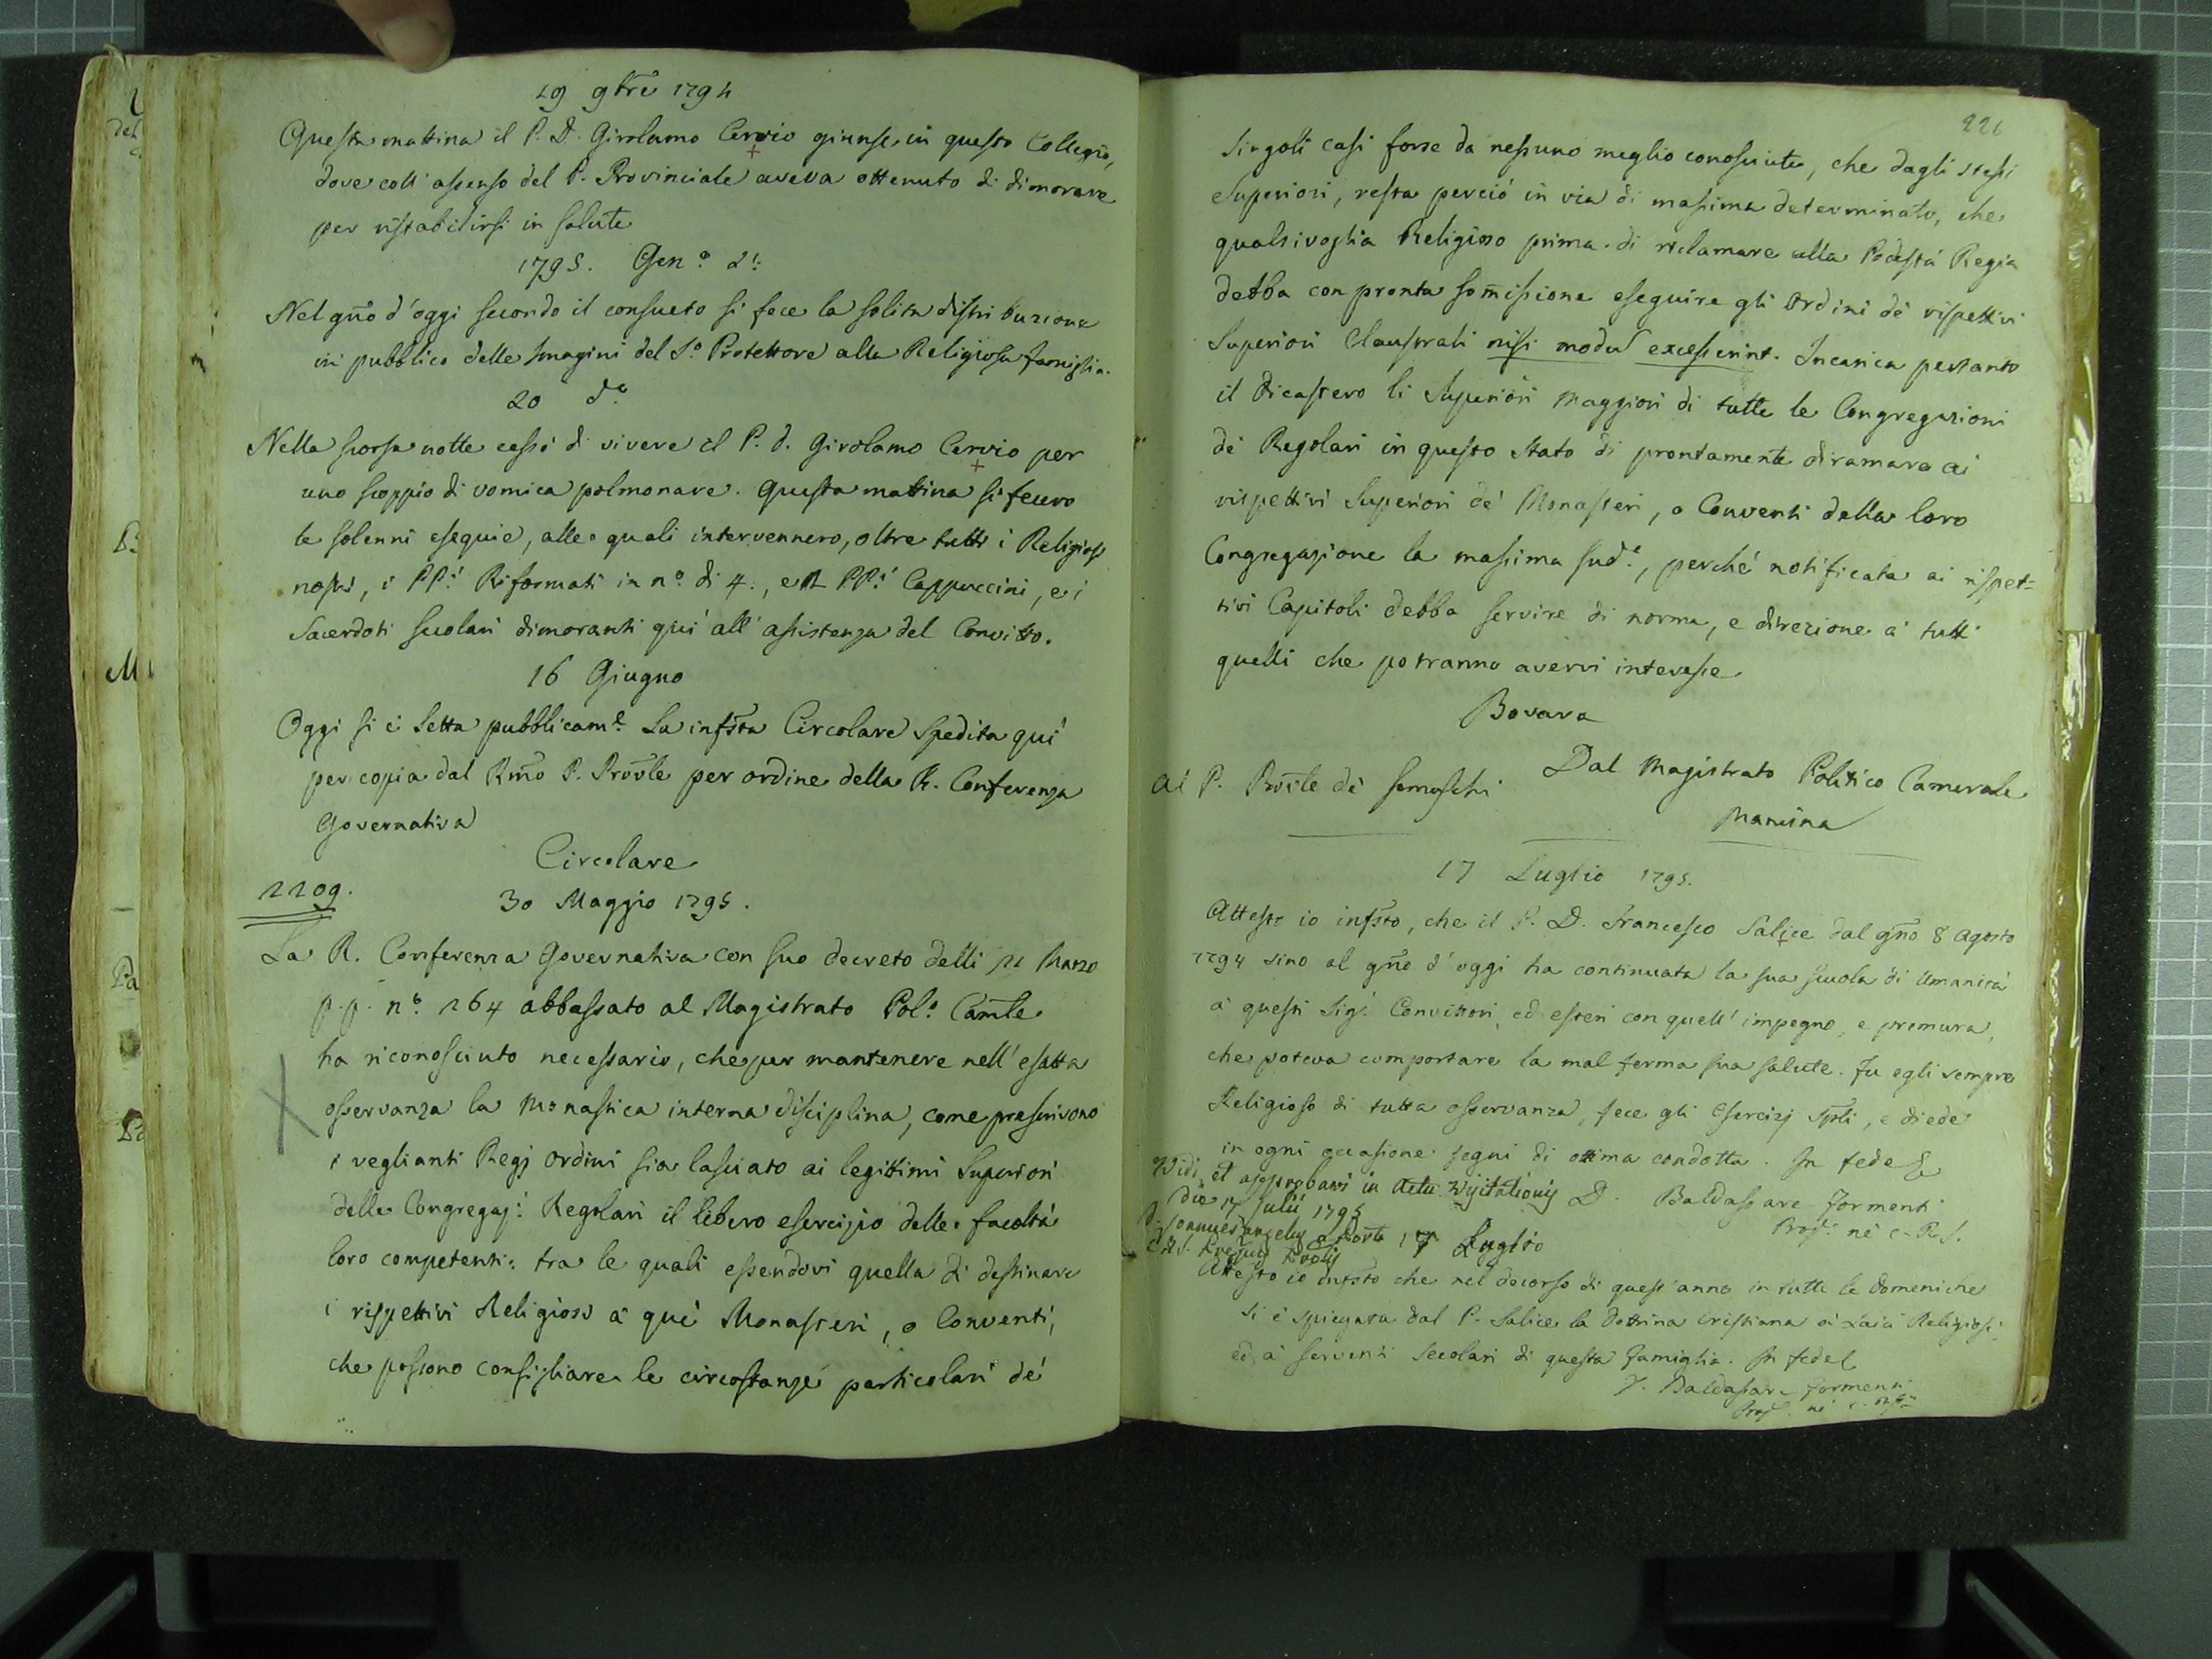 19 9bre 1794
Questa mattina il P. D. Girolamo Cervio giunse in questo Collegio,
dove coll' assenso del P. Provinciale aveva ottenuto di dimorare
per ristabilirsi in salute
1795. Gen.º 1:
Nel gño d'oggi secondo il consueto si fece la solita distribuzione
in pubblico delle Imagini del S.º Protettore alla Religiosa famiglia.
20 d.º
Nella scorsa notte cessò di vivere il P. D. Girolamo Cervio per
uno scoppio di vomica polmonare. Questa mattina si fecero
le solenni esequie, alle quali intervennero, oltre tutti i Religiosi
nostri, i PP.i Riformati in nº di 4., e PP.i Cappuccini, e i
Sacerdoti secolari dimoranti quì all' assistenza del Convitto.
16 Giugno
Oggi si è letta pubblicam.e La infsta Circolare spedita quì
per copia dal Rmo P. Provle per ordine della R. Conferenza
Governativa
Circolare
2209.
30 Maggio 1795.
La R. Conferenza Governativa con suo decreto delli Marzo
p.p. nº 264 abbassato al Magistrato Pol.º Camle
ha riconosciuto necessario, che per mantenere nell' esatta
osservanza la Monastica interna disciplina, come prescrivono
i veglianti Regj ordini sia lasciato ai legittimi Superiori
delle Congregaz.i Regolari il libero esercizio delle facoltà
loro competenti: tra le quali essendovi quella di destinare
i rispettivi Religiosi a que' Monasteri, o Conventi,
che possono consigliare le circostanze particolari de'
226
singoli casi forse da nessuno meglio conosciute, che dagli stessi
Superiori, resta perciò in via di massima determinato, che
qualsivoglia Religioso prima di reclamare alla Podestà Regia
debba con pronta somissione eseguire gli Ordini de' rispettivi
Superiori Claustrali nisi modu excesserint. Incarica pertanto
il Dicastero li Superiori Maggiori di tutte le Congregazioni
de' Regolari in questo Stato di prontamente diramare ai
rispettivi Superiori de' Monasteri, o Conventi della loro
Congregazione la massima sud.a, perché notificata ai rispet=
tivi Capitoli debba servire di norma, e direzione a' tutti
quelli che potranno avervi interesse
Bovara
Dal Magistrato Politico Camerale
Al P. Provle de' Somaschi
Mancina
17 Luglio 1795.
Attesto io infsto, che il P. D. Francesco Salice dal gño 8 Agosto
1794 sino al gño d'oggi ha continuata la sua scuola di Umanità
a' questi Sig.i Convittori, ed esteri con quell' impegno, e premura,
che poteva comportare la mal ferma sua salute. Fu egli sempre
Religioso di tutta osservanza, fece gli esercizj spli, e diede
in ogni occasione segni di ottima condotta. In fede &
Vidi, et approbavi in Actu Visitationis
D. Baldassare Formenti
die 17 Julii 1795
Prop.to ne' C.R.S.
17 Luglio
Attesto io infsto che nel decorso di quest'anno in tutte le Domeniche
si è spiegata dal P. Salice la Dottrina cristiana a' Laici Religiosi,
ed a' serventi Secolari di questa famiglia. In fede &
D. Baldassare Formenti